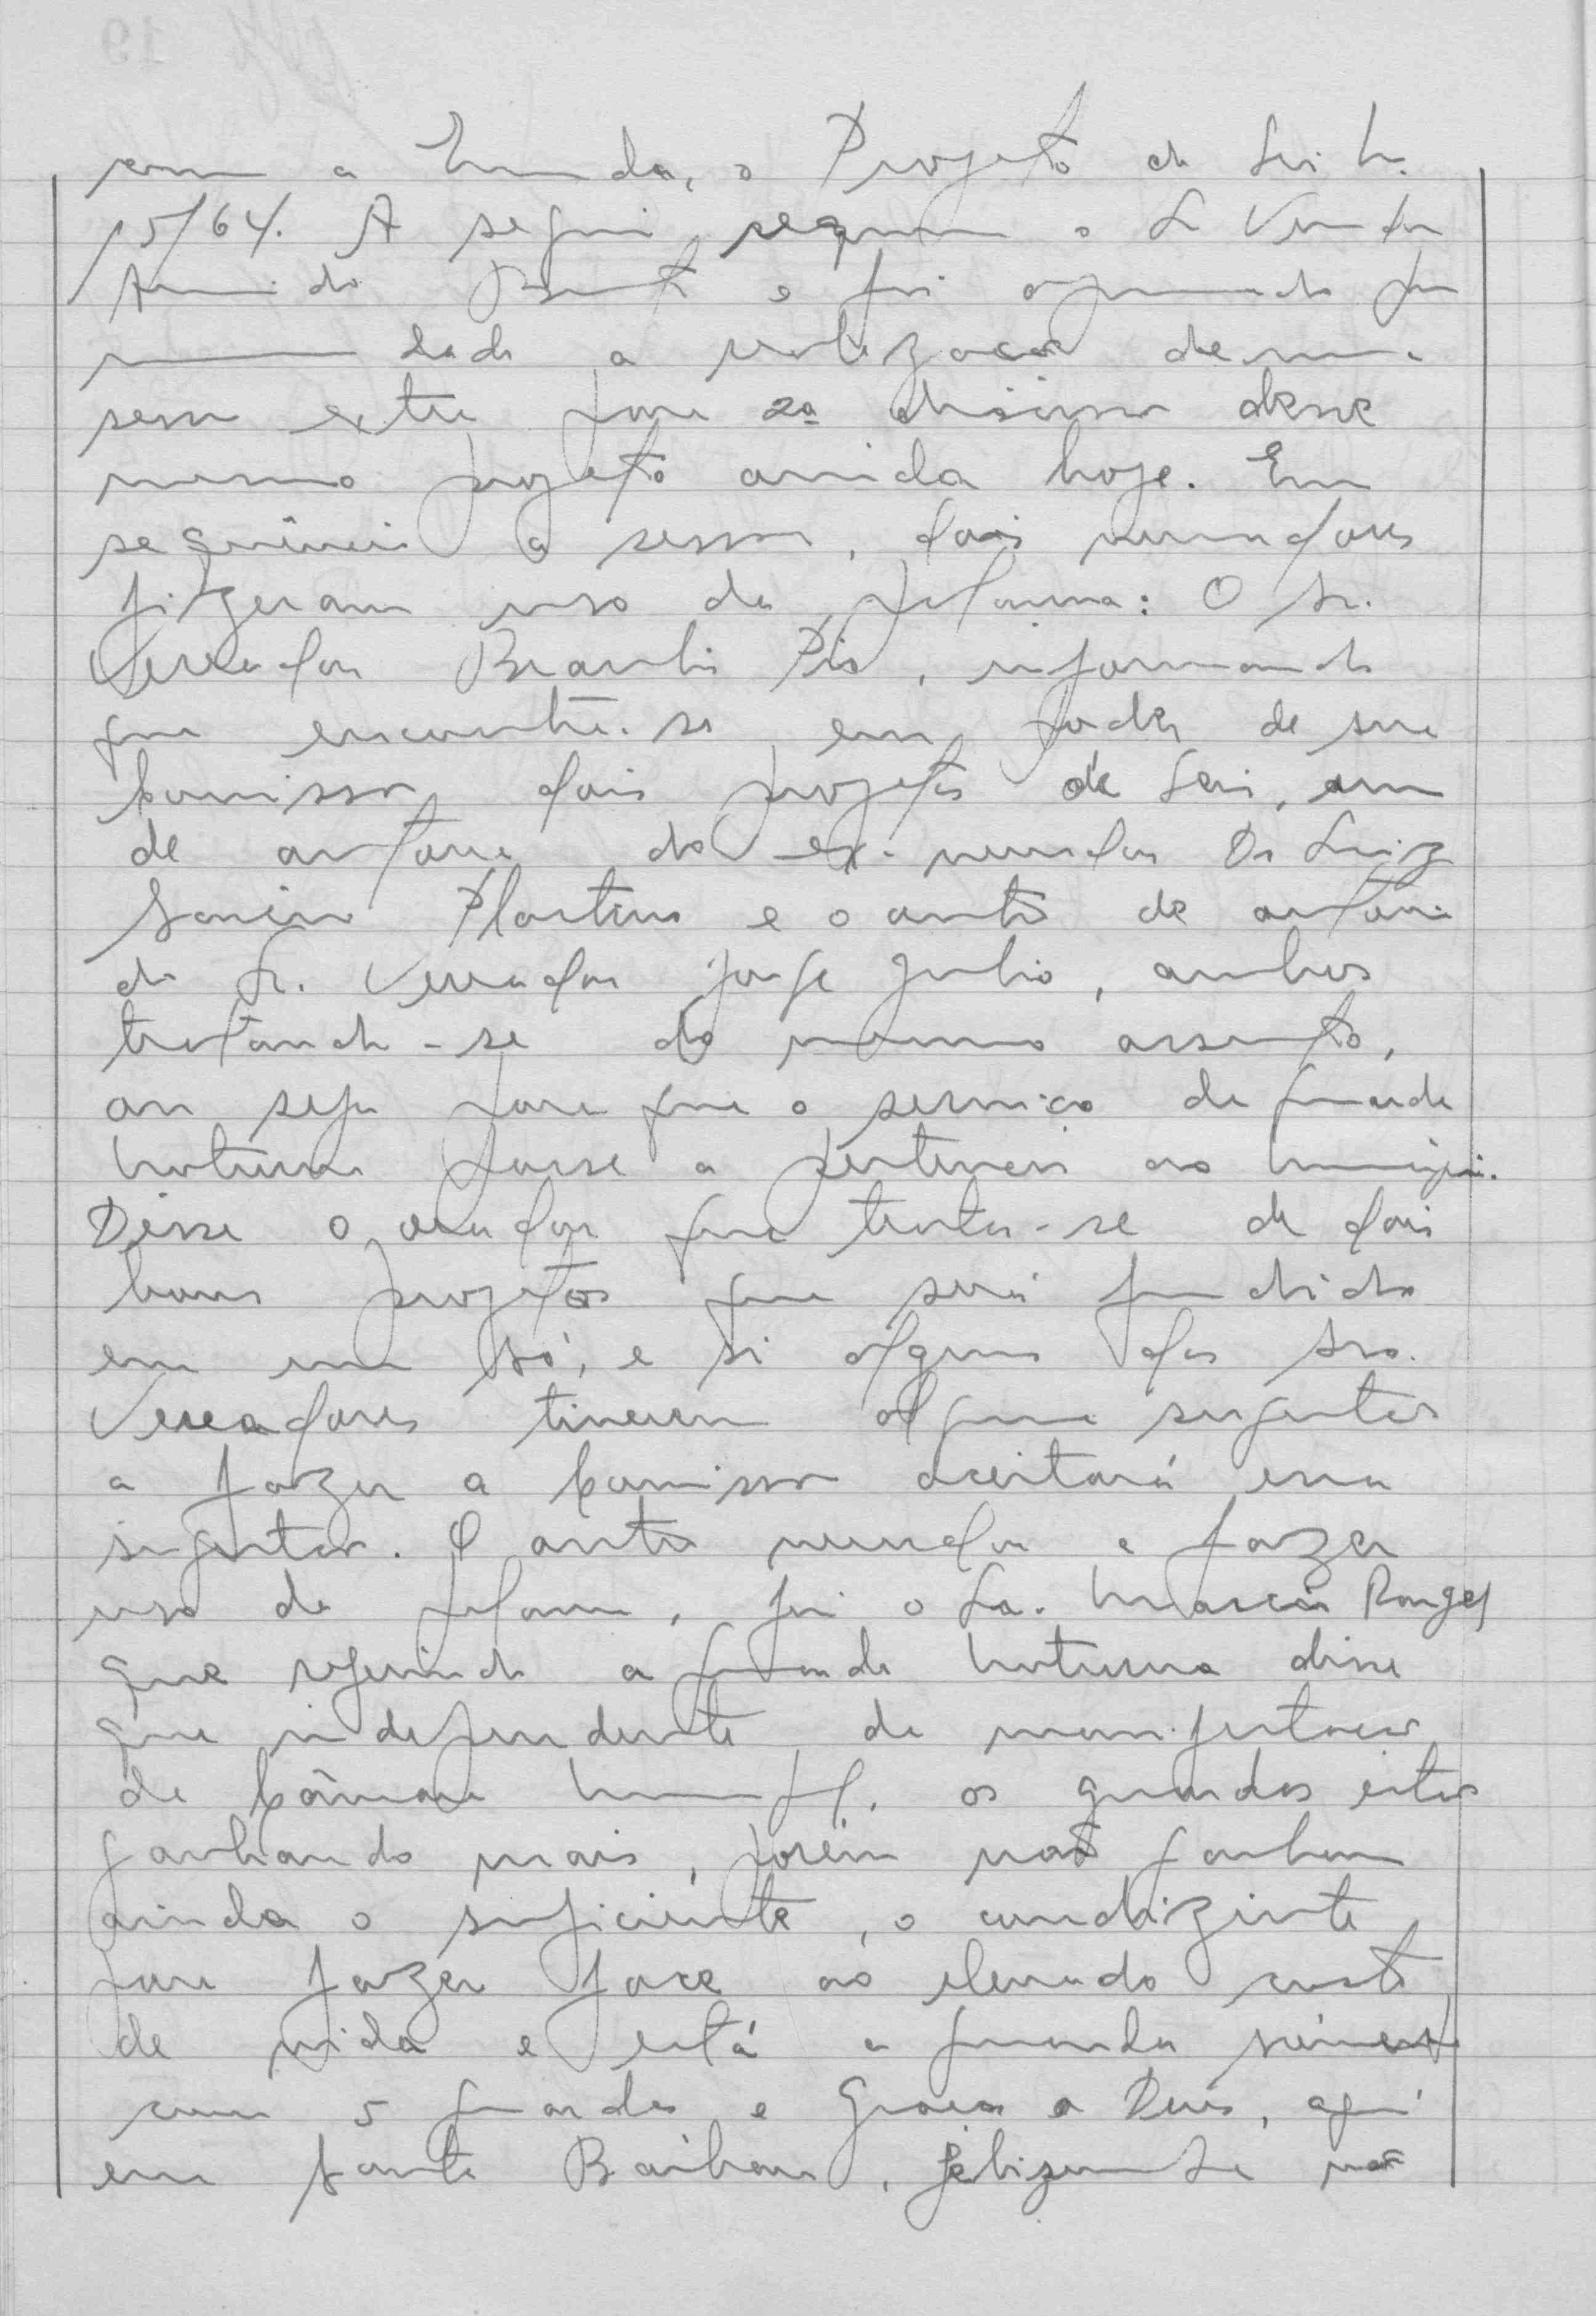 com a Emenda, o Projeto de Lei n.
15/64. A seguir, requereu o Sr Vereador
Armindo e foi aprovado por
unanimidade a realização de uma
sessão extra para 2a discussão desse
mesmo projeto ainda hoje. Em
sequência a sessão, dois vereadores
fizeram uso da palavra: O Sr.
Vereador Braulio Pio, informando
que encontra-se em poder de sua
Comissão dois projetos de Lei, um
de autoria do ex-vereador Dr Luiz
Martins e o outro de autoria
do Sr. Vereador Jorge Julio, ambos
tratando-se do mesmo assunto,
ou seja para que o serviço de guarda
noturna passe a pertencer ao município.
Disse o orador que trata-se de dois
bons projetos que será fundido
em um só, e si alguns dos srs.
Vereadores tiverem alguma sugestão
a fazer a Comissão aceitará essa
sugestão. O outro vereador a fazer
uso da palavra, foi o Sr. Marcio Rangel
que referindo a guarda noturna disse
que independente de manifestação
da Câmara Municipal, os guardas estão
ganhando mais, porém não ganham
ainda o suficiente, o condizente
para fazer face ao elevado custo
de vida e está a guarda somente
com 5 guardas e Graças a Deus, aqui
em Santa Bárbara, felizmente não